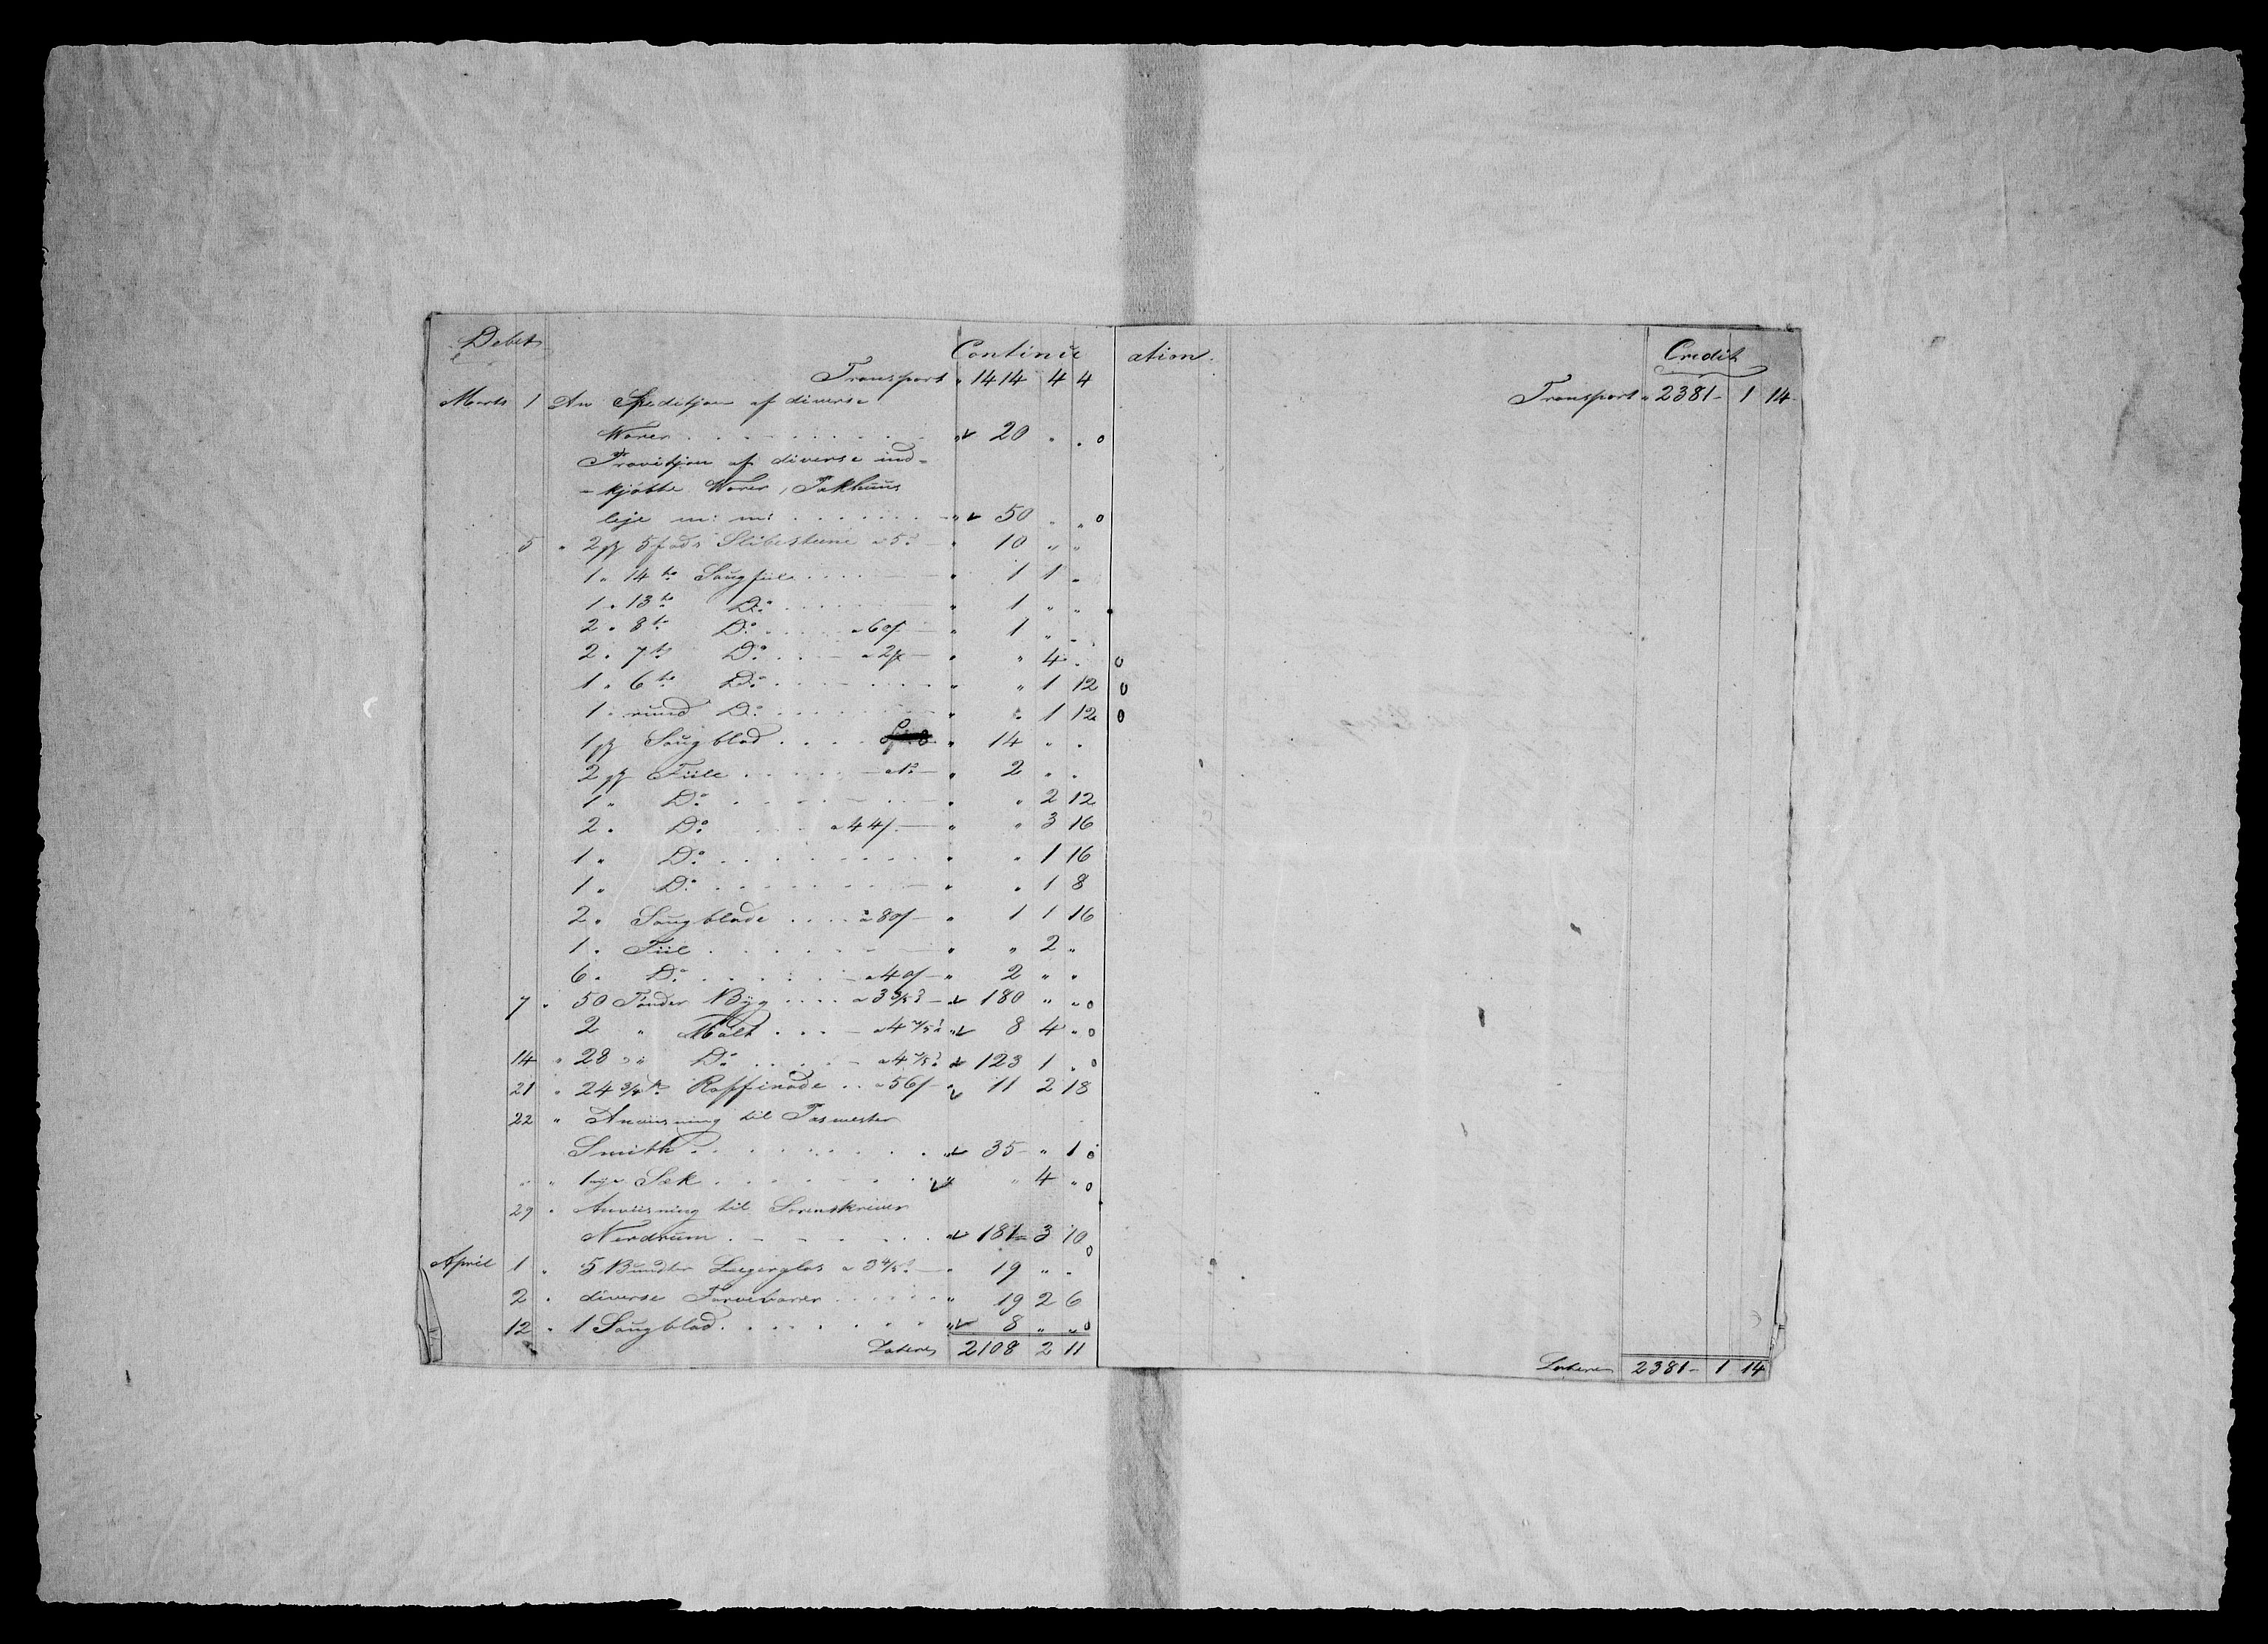 Debet Continu ation. Credit
Transport " 1414 4 4
Transport " 2381 - 1 14
Marts 1 An Speditjon af diverse
Warer . . . . " 20 " "
Provitjon af diverse ind-
-kjøbte Warer, Pakhuus
leje m: m: . . . . " 50 " "
5 " 2 st 5 fods Slibestene a 5 - " 10 " "
1 " 14 to Saugfiil . . . . " 1 1 "
1 " 13 to Do . . . . " 1 " "
2 " 8 to Do . . . . a 60 s " 1 " "
2 " 7 to Do . . . a 2 - " " 4 "
1 " 6 to Do . . . . " " 1 12
1 " rund Do . . . . " " 1 12
1 st Saugblad . . . . " 14 " "
2 st Fiile . . . . a 1 - " 2 " "
1 " Do . . . . " " 2 12
2 " Do . . . a 44 s - " " 3 16
1 " Do . . . . " " 1 16
1 " Do . . . . " " 1 8
2 " Saugblade . . . . a 80 s - " 1 1 16
1 " Fiil . . . . " " 2 "
6 " Do . . . . a 40 s - " 2 " "
7 " 50 Tønder Byg . . . . a 3 3/5 - " 180 " "
2 " Malt . . . - a 4 2/5 " 8 4 "
14 " 28 " " Do . . . . a 4 2/5 " 123 1 "
21 " 24 3/4 Raffinade . . a 56 s - " 11 2 18
22 " Anviisning til
Smith . . . . " 35 - " 1
" " 1 nye Sæk . . . . " " 4 "
29 " Anviisning til Sorenskriver
Nerdrum . . . . " 181 - 3 10
April 1 " 5 Bundter Luegerglas a 3 4/5 - " 19 " "
2 " diverse Farvevarer . . . . " 19 2 6
12 " 1 Saugblad . . . . " 8 " "
Latere 2108 2 11
Latere 2381 - 1 14